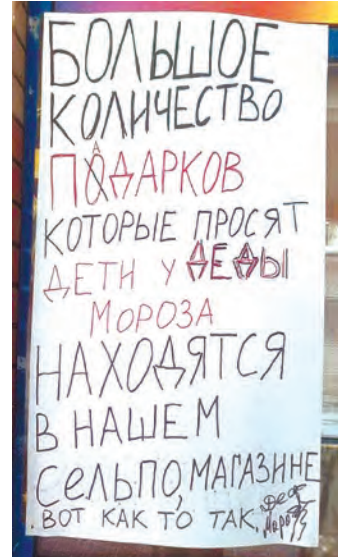 БОЛЬШОЕ
КОЛИЧЕСТВО
ПАДАРКОВ
КОТОРЫЕ ПРОСЯТ
ДЕТИ У ДЕДЫ
МОРОЗА
НАХОДЯТСЯ
В НАШЕМ
СЕЛЬПО, МАГАЗИНЕ
ВОТ КАК ТО ТАК, Дед
Мороз